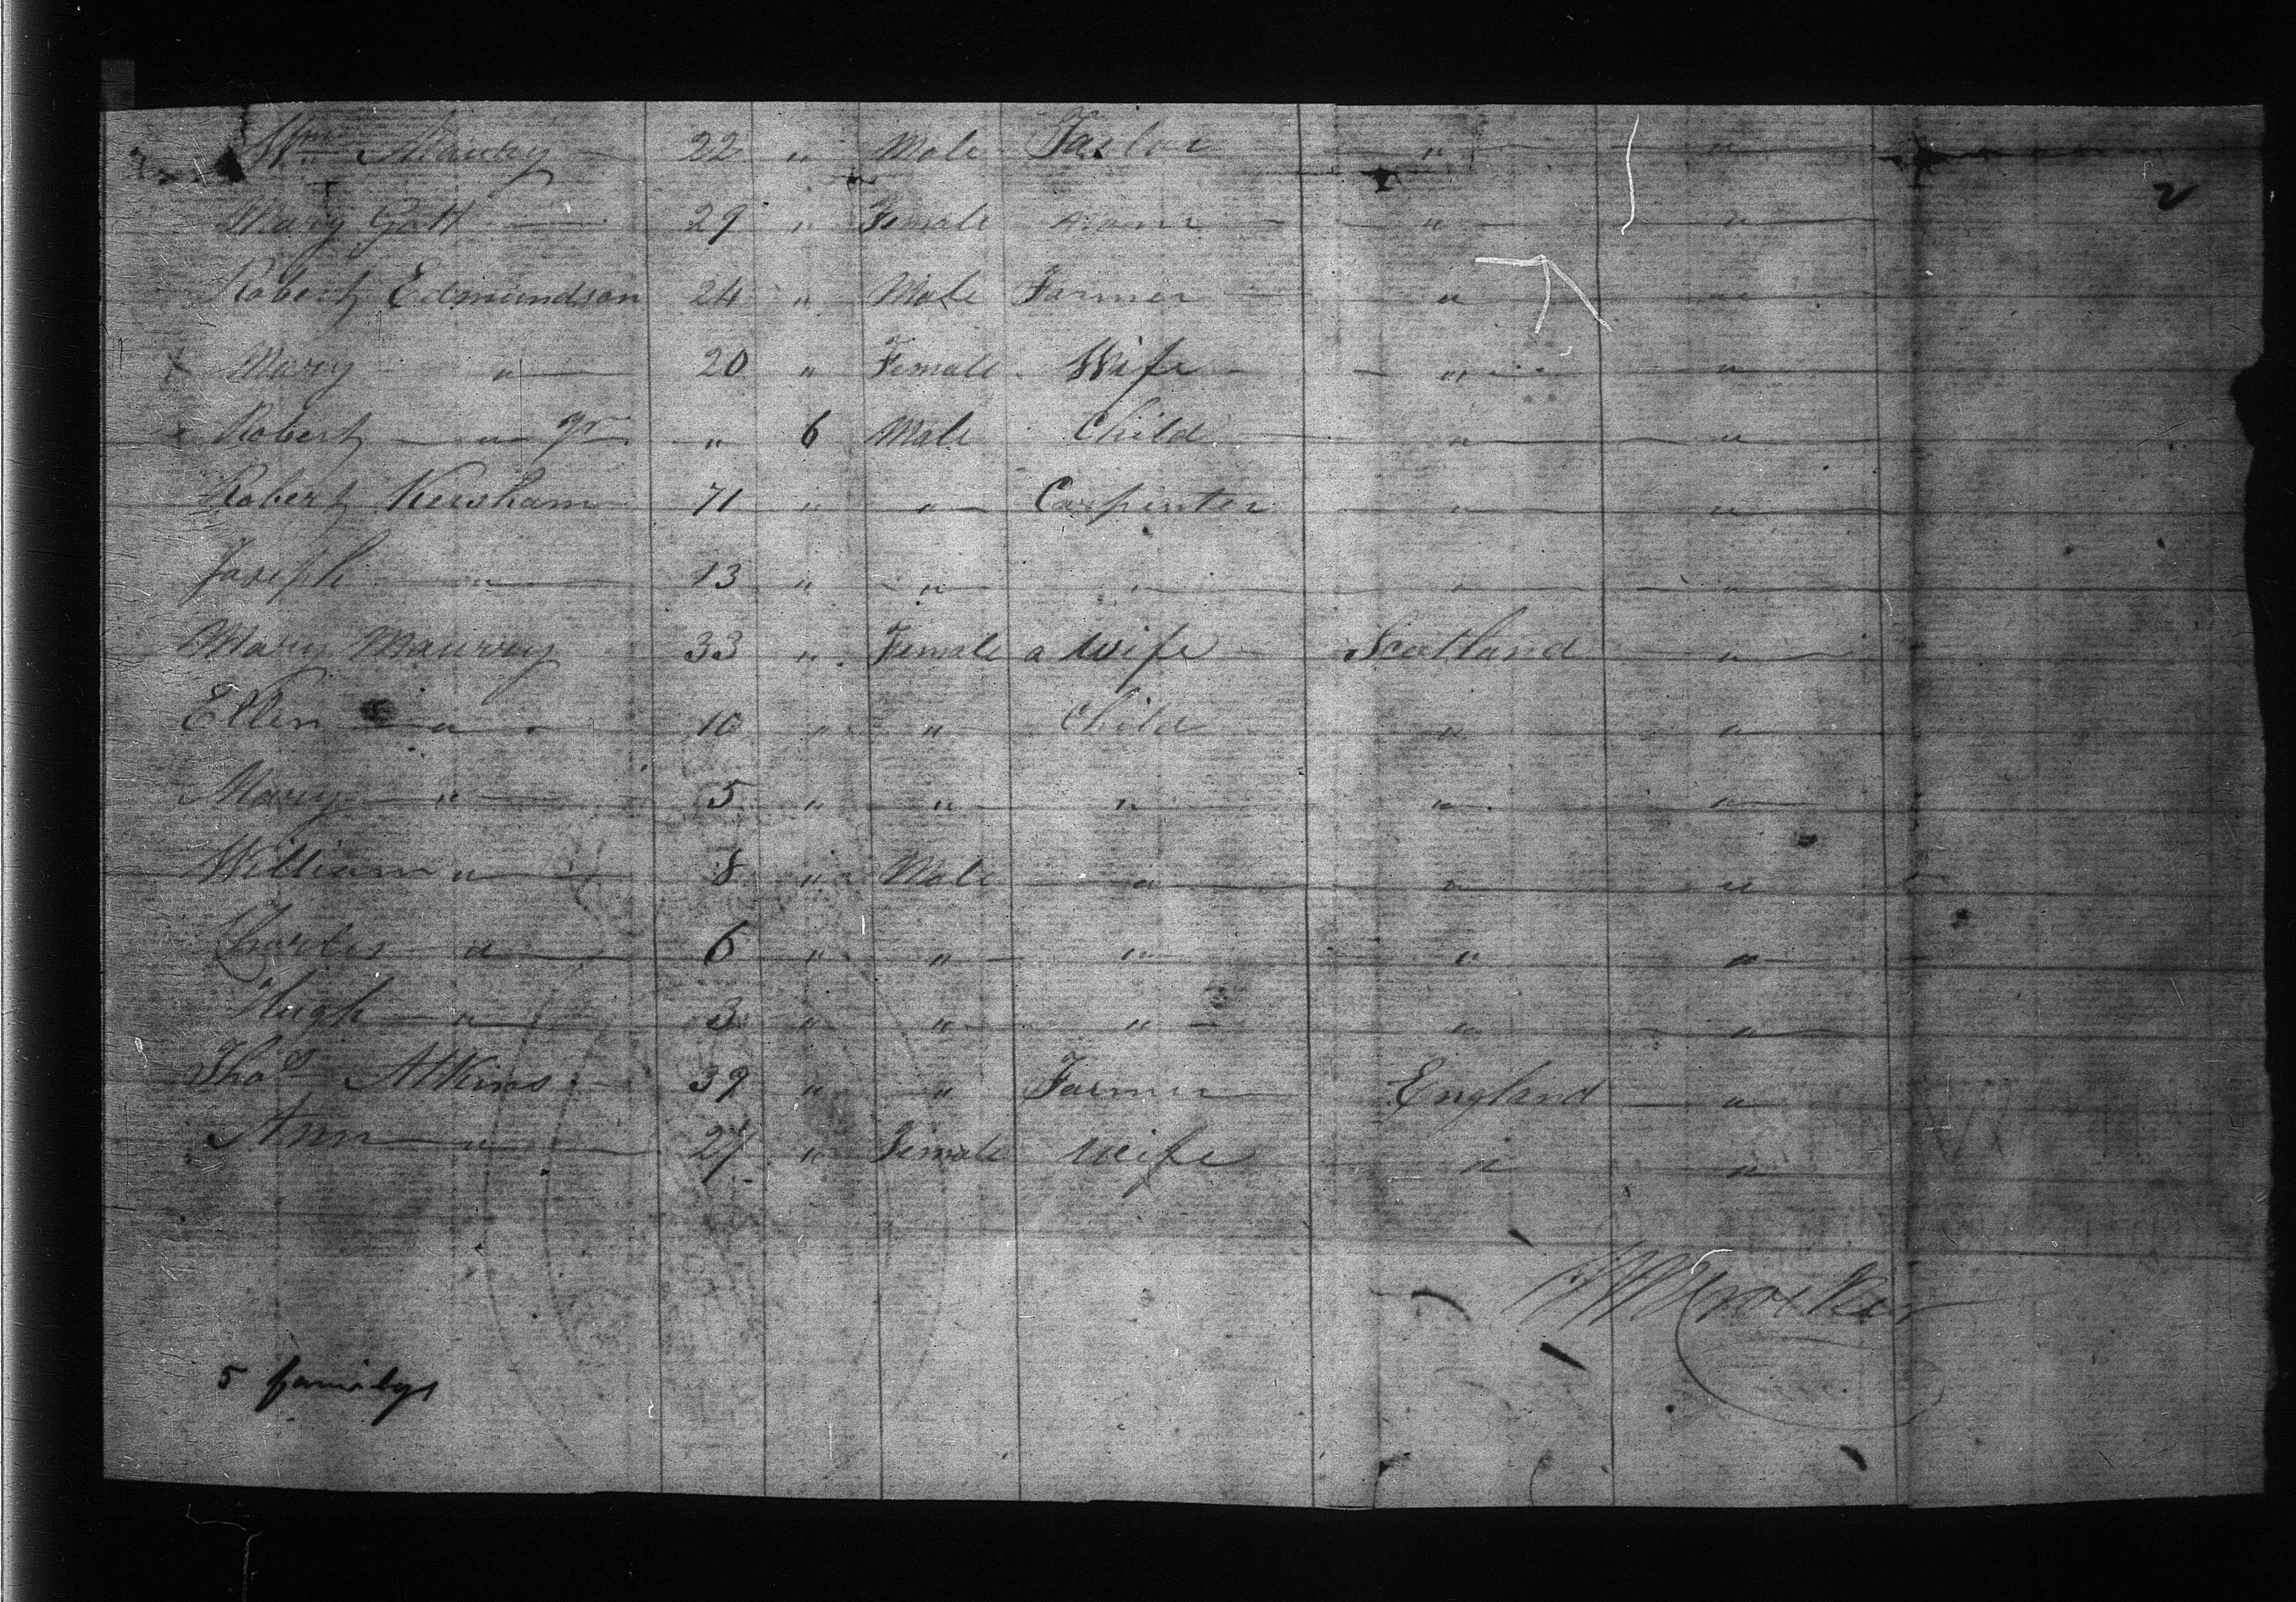 Wm Mawry 22 " Male Tailor " "
Mary Gatt 29 " Female None " "
Robert Edmundson 24 " Male Farmer " "
Mary " 20 " Female Wife " "
Robert " Jr " 6 Male Child " "
Robert Kewsham 71 " " Carpenter " "
Joseph " 13 " " " " "
Mary Mawrey 33 " Female a wife Scotland "
Ellen " 10 " " Child " "
Mary " 5 " " " " "
William " 8 " Male " " "
Charles " 6 " " " " "
Hugh " 3 " " " " "
Thos Atkins 39 " " Farmer England "
Ann " 27 " Female wife " "
Crocker
5 familys